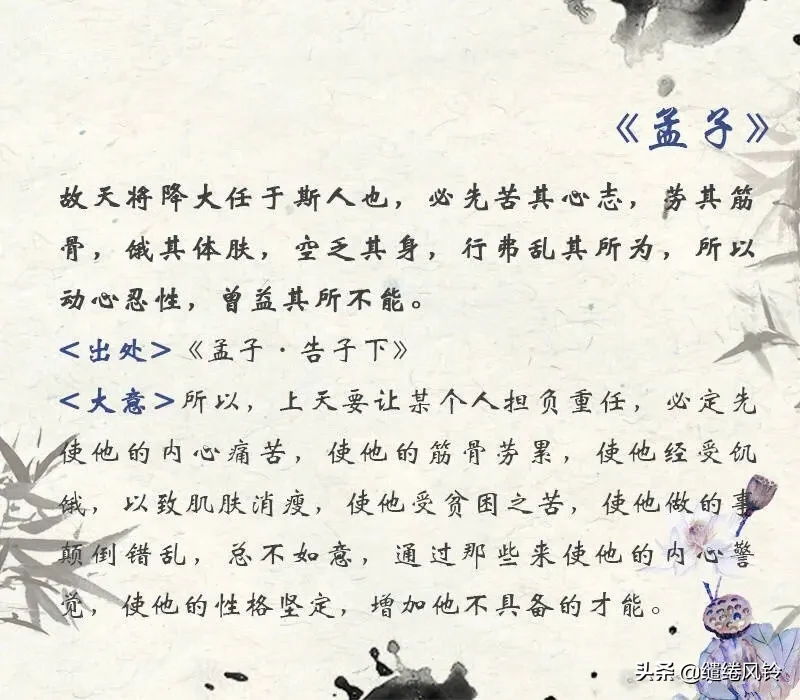 《孟子》
故天将降大任于斯人也，必先苦其心志，劳其筋
骨，饿其体肤，空乏其身，行弗乱其所为，所以
动心忍性，曾益其所不能。
<出处>《孟子·告子下》
<大意>所以，上天要让某个人担负重任，必定先
使他的内心痛苦，使他的筋骨劳累，使他经受饥
饿，以致肌肤消瘦，使他受贫困之苦，使他做的事
颠倒错乱，总不如意，通过那些来使他的内心警
觉，使他的性格坚定，增加他不具备的才能。
头条 @缱绻风铃